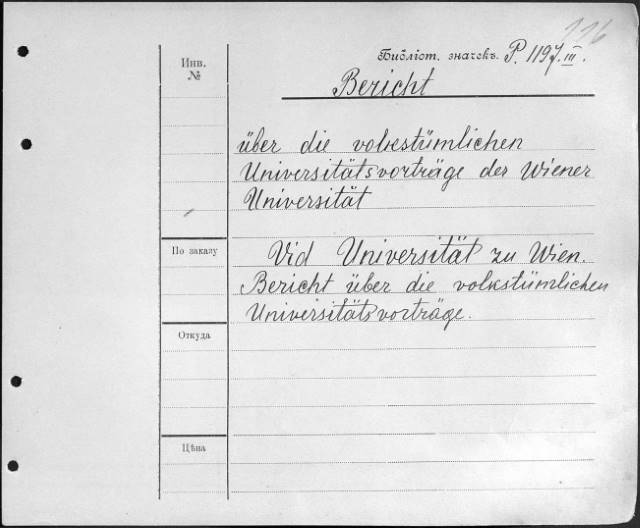 116
Библіот. значекъ. P. 1197.III.
Bericht
Инв.
№
über die volkstümlichen
Universitätsvorträge der Wiener
Universität
По заказу
Vid Universität zu Wien.
Bericht über die volkstümlichen
Universitätsvorträge.
Откуда
Цѣна